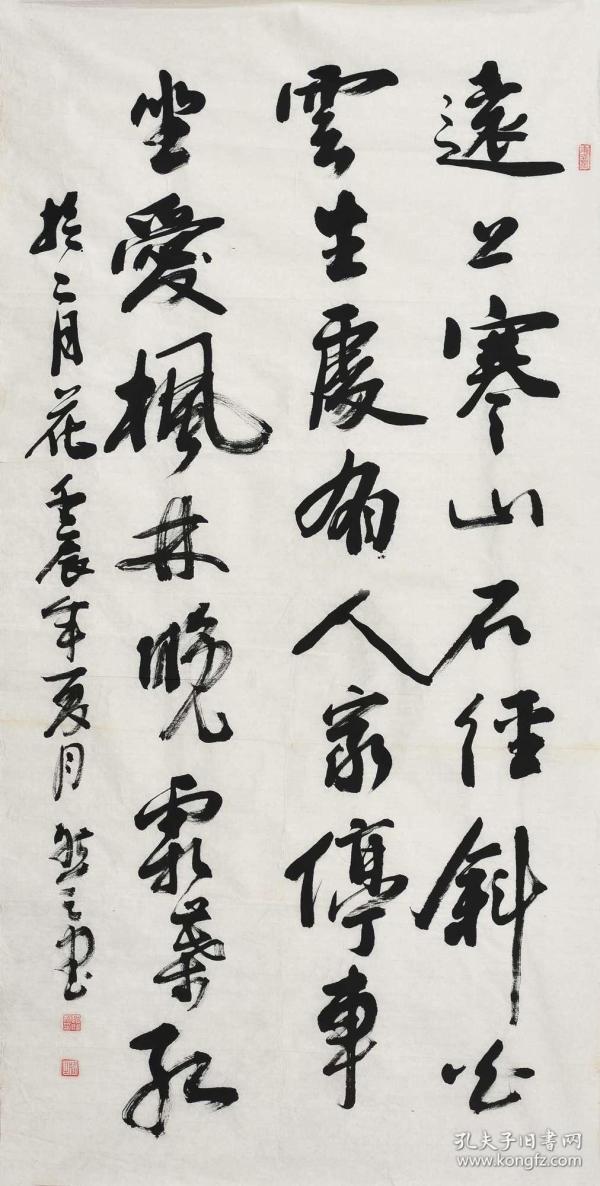 遠上寒山石徑斜白
雲生處有人家停車
坐愛楓林晚霜葉紅
於二月花壬辰年夏月然之书
孔夫子旧书网
www.kongfz.com